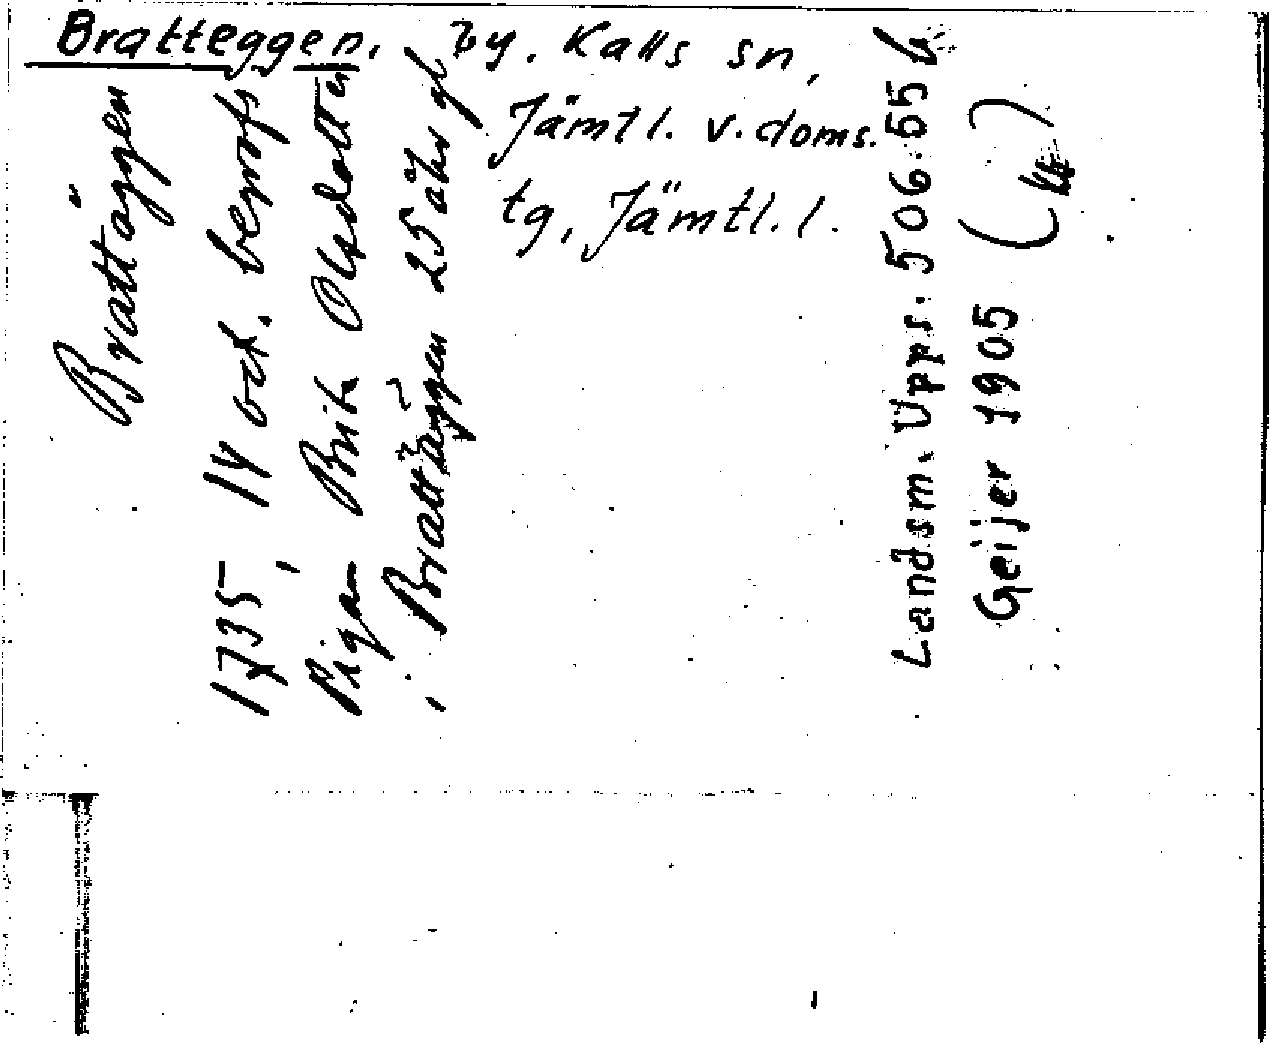 Bratteggen, by. Kalls sn,
Jämtl. v. doms.
tg, Jämtl. l.
Brattäggen
1735, 14 oct. begrofs
Pigan Brita Olsdotter
i Brattäggen 25 åhr gl
Landsm. Upps. 506:55 b
Geijer 1905 ( )